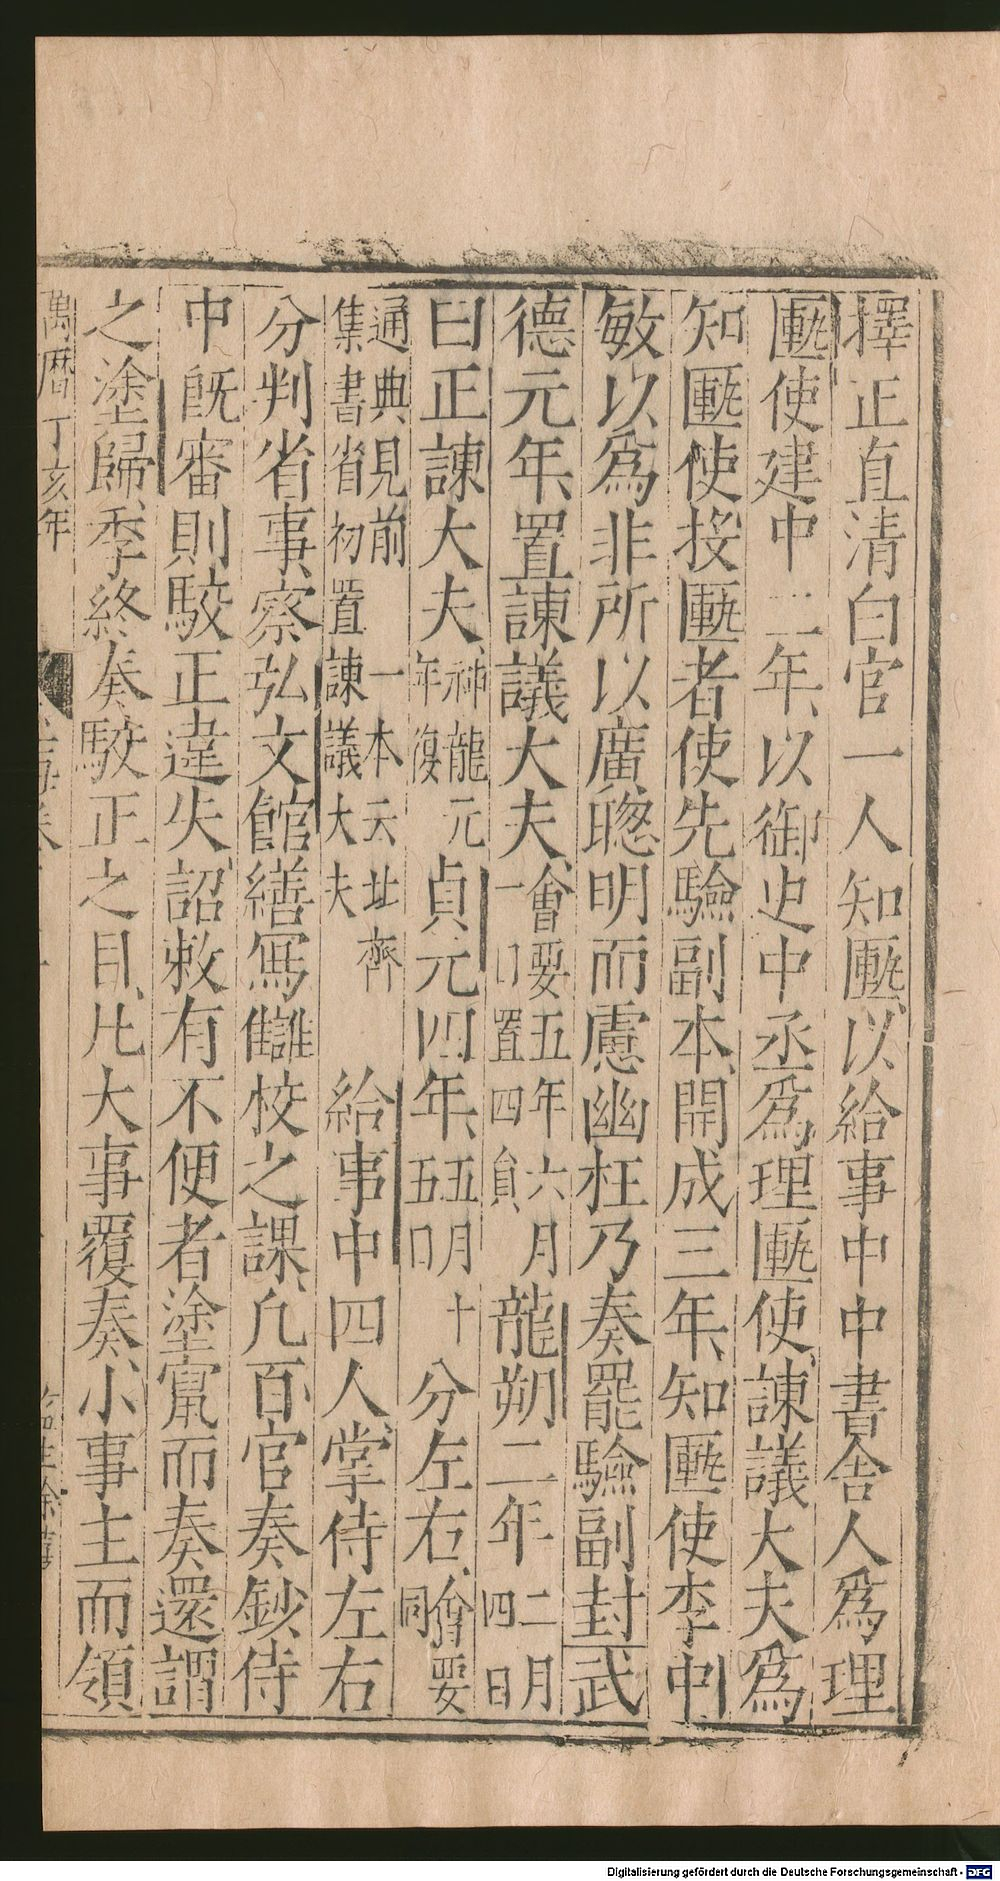 擇正直清白官一人知匭以給事中中書舍人爲理
匭使建中二年以御史中丞爲理匭使諫議大夫爲
知匭使投匭者使先驗副本開成三年知匭使李中
敏以爲非所以廣聰明而慮幽枉乃奏罷驗副封武
德元年置諫議大夫會要五年六月一日置四員龍朔二年二月四日
曰正諫大夫神龍元年復貞元四年五月十五日分左右會要同
通典見前一本云北齊集書省初置諫議大夫給事中四人掌侍左右
分判省事察弘文館繕寫讎校之課凡百官奏鈔侍
中旣審則駮正違失詔敕有不便者塗竄而奏還謂
之塗歸季終奏駮正之目凡大事覆奏小事主而領
萬曆丁亥年
Digitalisierung gefördert durch die Deutsche Forschungsgemeinschaft - DFG